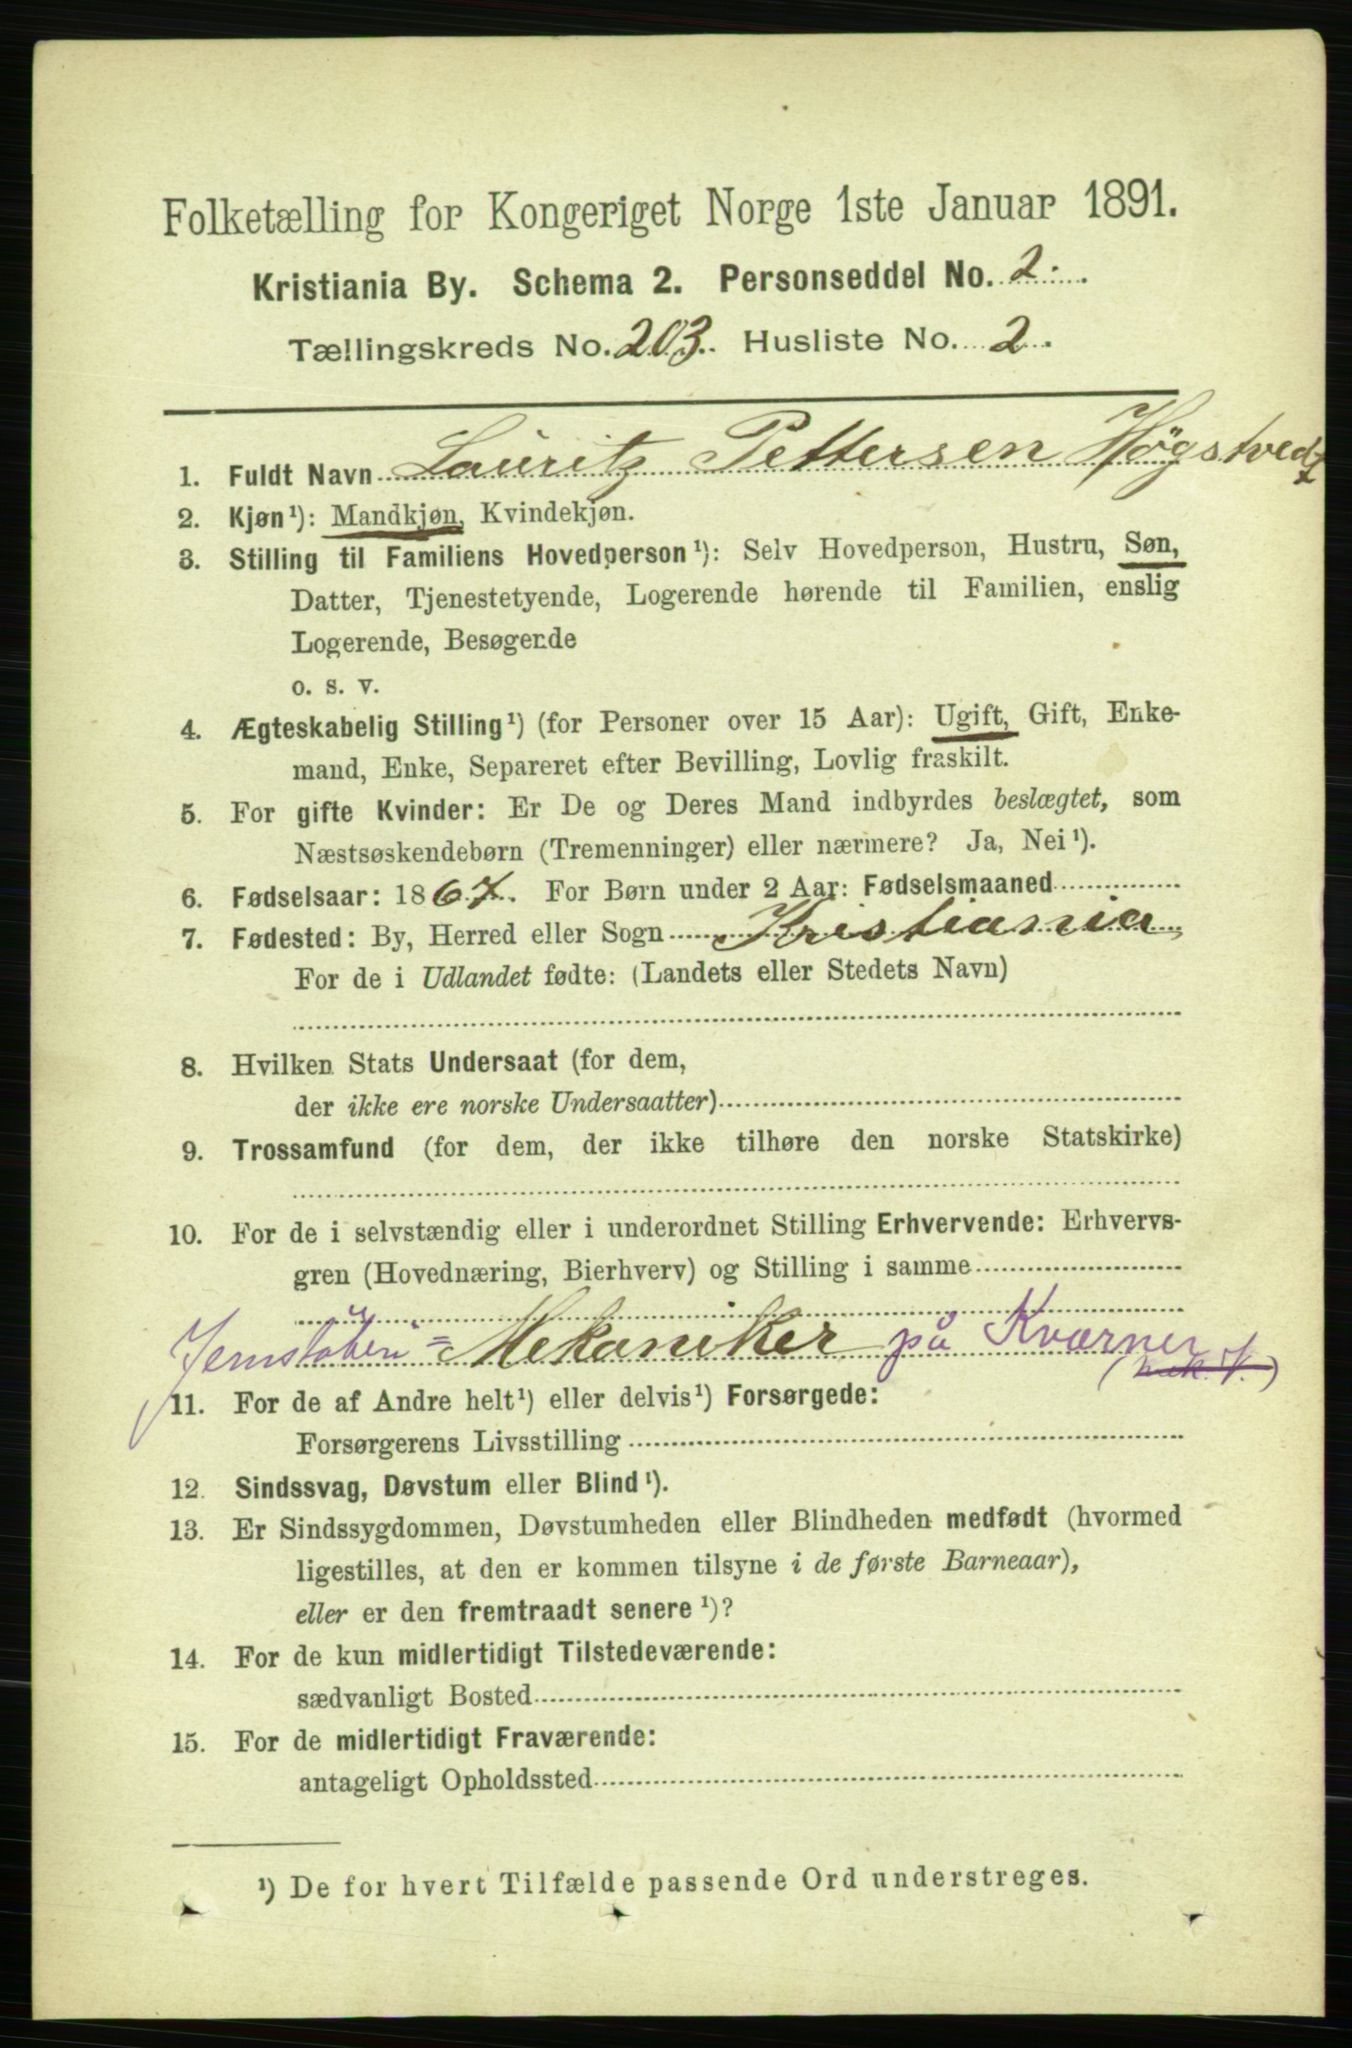 Folketælling for Kongeriget Norge 1ste Januar 1891.
Kristiania By. Schema 2. Personseddel No. 2.
Tællingskreds No. 203. Husliste No. 2.
1. Fuldt Navn Lauritz Pettersen Høgstvedt
2. Kjøn¹): Mandkjøn, Kvindekjøn.
3. Stilling til Familiens Hovedperson¹): Selv Hovedperson, Hustru, Søn,
Datter, Tjenestetyende, Logerende hørende til Familien, enslig
Logerende, Besøgende
o. s. v.
4. Ægteskabelig Stilling¹) (for Personer over 15 Aar): Ugift, Gift, Enke-
mand, Enke, Separeret efter Bevilling, Lovlig fraskilt.
5. For gifte Kvinder: Er De og Deres Mand indbyrdes beslægtet, som
Næstsøskendebørn (Tremenninger) eller nærmere? Ja, Nei¹).
6. Fødselsaar: 1867. For Børn under 2 Aar: Fødselsmaaned
7. Fødested: By, Herred eller Sogn Kristiania
For de i Udlandet fødte: (Landets eller Stedets Navn)
8. Hvilken Stats Undersaat (for dem,
der ikke ere norske Undersaatter)
9. Trossamfund (for dem, der ikke tilhøre den norske Statskirke)
10. For de i selvstændig eller i underordnet Stilling Erhvervende: Erhvervs-
gren (Hovednæring, Bierhverv) og Stilling i samme
Jernstøberi = Mekaniker på Kværner
(mek. V.)
11. For de af Andre helt¹) eller delvis¹) Forsørgede:
Forsørgerens Livsstilling
12. Sindssvag, Døvstum eller Blind¹).
13. Er Sindssygdommen, Døvstumheden eller Blindheden medfødt (hvormed
ligestilles, at den er kommen tilsyne i de første Barneaar),
eller er den fremtraadt senere¹)?
14. For de kun midlertidigt Tilstedeværende:
sædvanligt Bosted
15. For de midlertidigt Fraværende:
antageligt Opholdssted
¹) De for hvert Tilfælde passende Ord understreges.